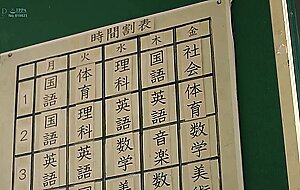 時間割表
月 火 水 木 金
1 国語 体育 理科 国語 社会
2 国語 理科 英語 英語 体育
3 英語 英語 数学 音楽 数学
美 数 美術